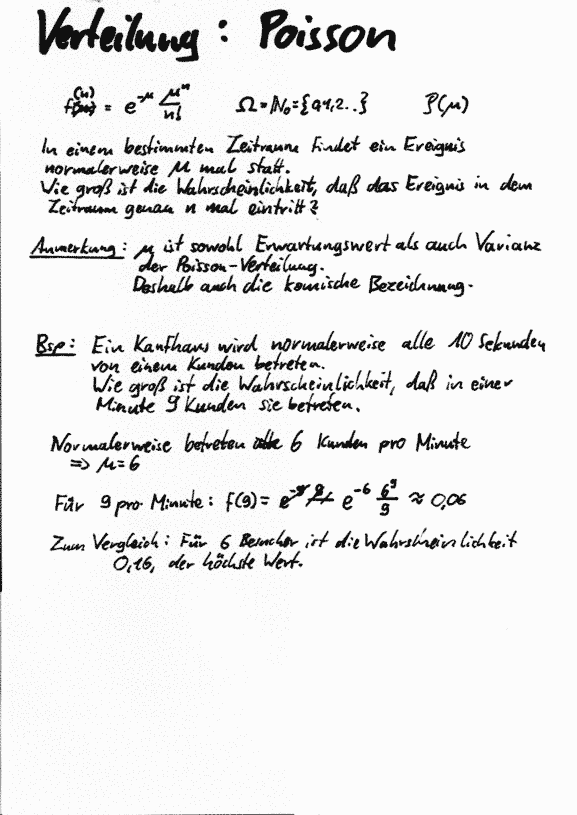 Verteilung : Poisson
f(n) = e^-μ μ^n/n! Ω = ℕ₀ = {0,1,2..} P(μ)
In einem bestimmten Zeitraum findet ein Ereignis
normalerweise μ mal statt.
Wie groß ist die Wahrscheinlichkeit, daß das Ereignis in dem
Zeitraum genau n mal eintritt?
Anmerkung : μ ist sowohl Erwartungswert als auch Varianz
der Poisson-Verteilung.
Deshalb auch die komische Bezeichnung.
Bsp: Ein Kaufhaus wird normalerweise alle 10 Sekunden
von einem Kunden betreten.
Wie groß ist die Wahrscheinlichkeit, daß in einer
Minute 9 Kunden sie betreten.
Normalerweise betreten 6 Kunden pro Minute
=> μ = 6
Für 9 pro Minute : f(9) = e^-6 6^9/9 ≈ 0,06
Zum Vergleich : Für 6 Besucher ist die Wahrscheinlichkeit
0,16, der höchste Wert.